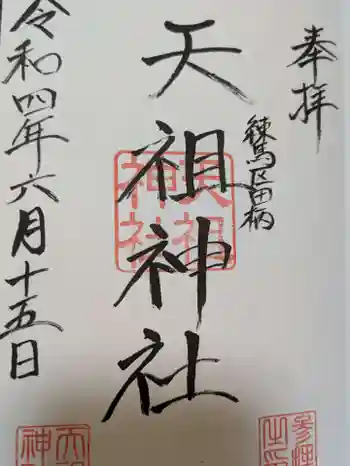 奉拝
練馬区田柄
天祖神社
天祖
神社
令和四年六月十五日